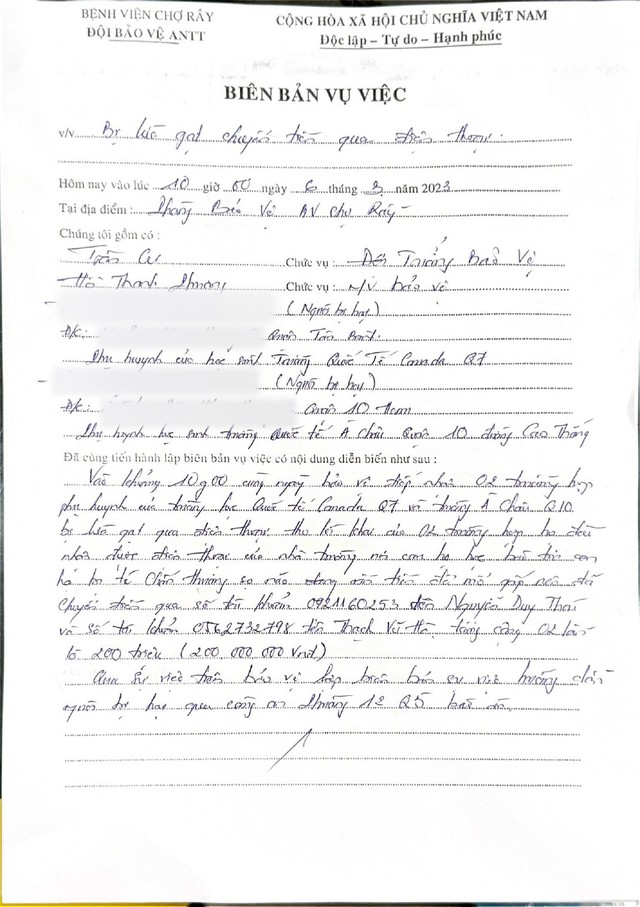 BỆNH VIỆN CHỢ RẪY
ĐỘI BẢO VỆ ANTT
CỘNG HÒA XÃ HỘI CHỦ NGHĨA VIỆT NAM
Độc lập – Tự do – Hạnh phúc
BIÊN BẢN VỤ VIỆC
v/v Bị lừa gạt chuyển tiền qua điện thoại.
Hôm nay vào lúc 10 giờ 00 ngày 6 tháng 3 năm 2023
Tại địa điểm : Phòng Bảo Vệ BV Chợ Rẫy
Chúng tôi gồm có :
Trần Chức vụ : Đội Trưởng Bảo Vệ
Hồ Thanh Phương Chức vụ : N/V bảo vệ
(Người bị hại)
ĐK: Quận Tân Bình
Phụ huynh của học sinh Trường Quốc Tế Canada Q7
(Người bị hại)
ĐK: Quận 10
Phụ huynh học sinh trường Quốc tế Á Châu Quận 10 đường Cao Thắng
Đã cùng tiến hành lập biên bản vụ việc có nội dung diễn biến như sau :
Vào khoảng 10g00 cùng ngày bảo vệ tiếp nhận 02 trường hợp
phụ huynh của trường học Quốc tế Canada Q7 và trường Á Châu Q10
bị lừa gạt qua điện thoại theo lời khai của 02 trường hợp họ đều
nhận được điện thoại của nhà trường nói con họ học bài
bị té chấn thương sọ não cần tiền để mổ gấp nên đã
chuyển tiền qua số tài khoản 0921160253 tên Nguyễn Duy Thái
và số tài khoản 0562732798 tên Thạch Vũ Hà tổng cộng 02 lần
là 200 triệu (200.000.000 Vnđ)
Qua sự việc trên bảo vệ lập biên bản sự việc hướng dẫn
người bị hại qua công an Phường 12 Q5